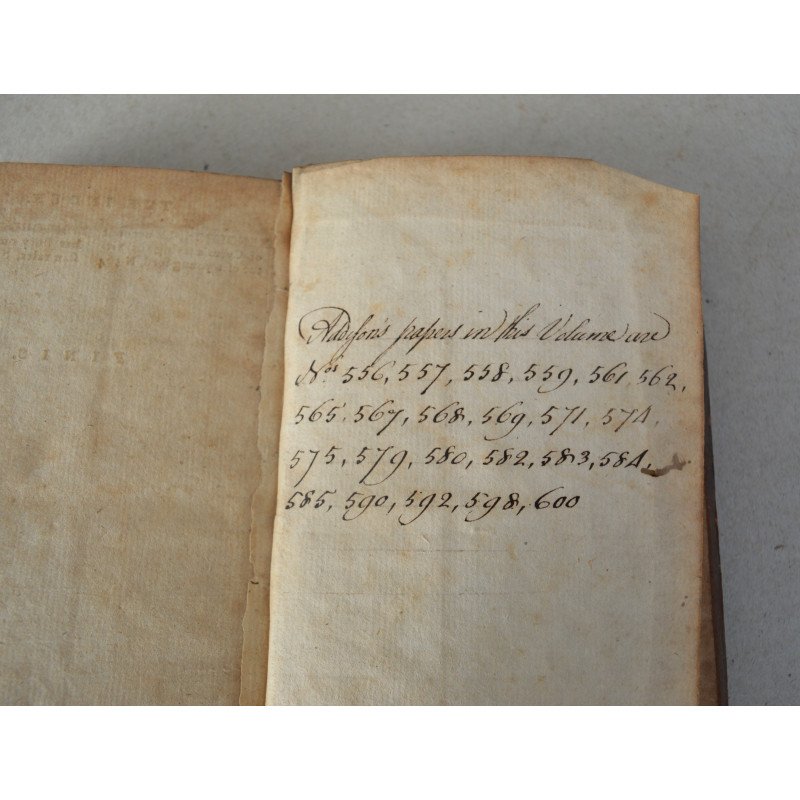 Addison's papers in this Volume are
Nos. 556, 557, 558, 559, 561, 562,
565, 567, 568, 569, 571, 574,
575, 579, 580, 582, 583, 584,
585, 590, 592, 598, 600
FINIS.